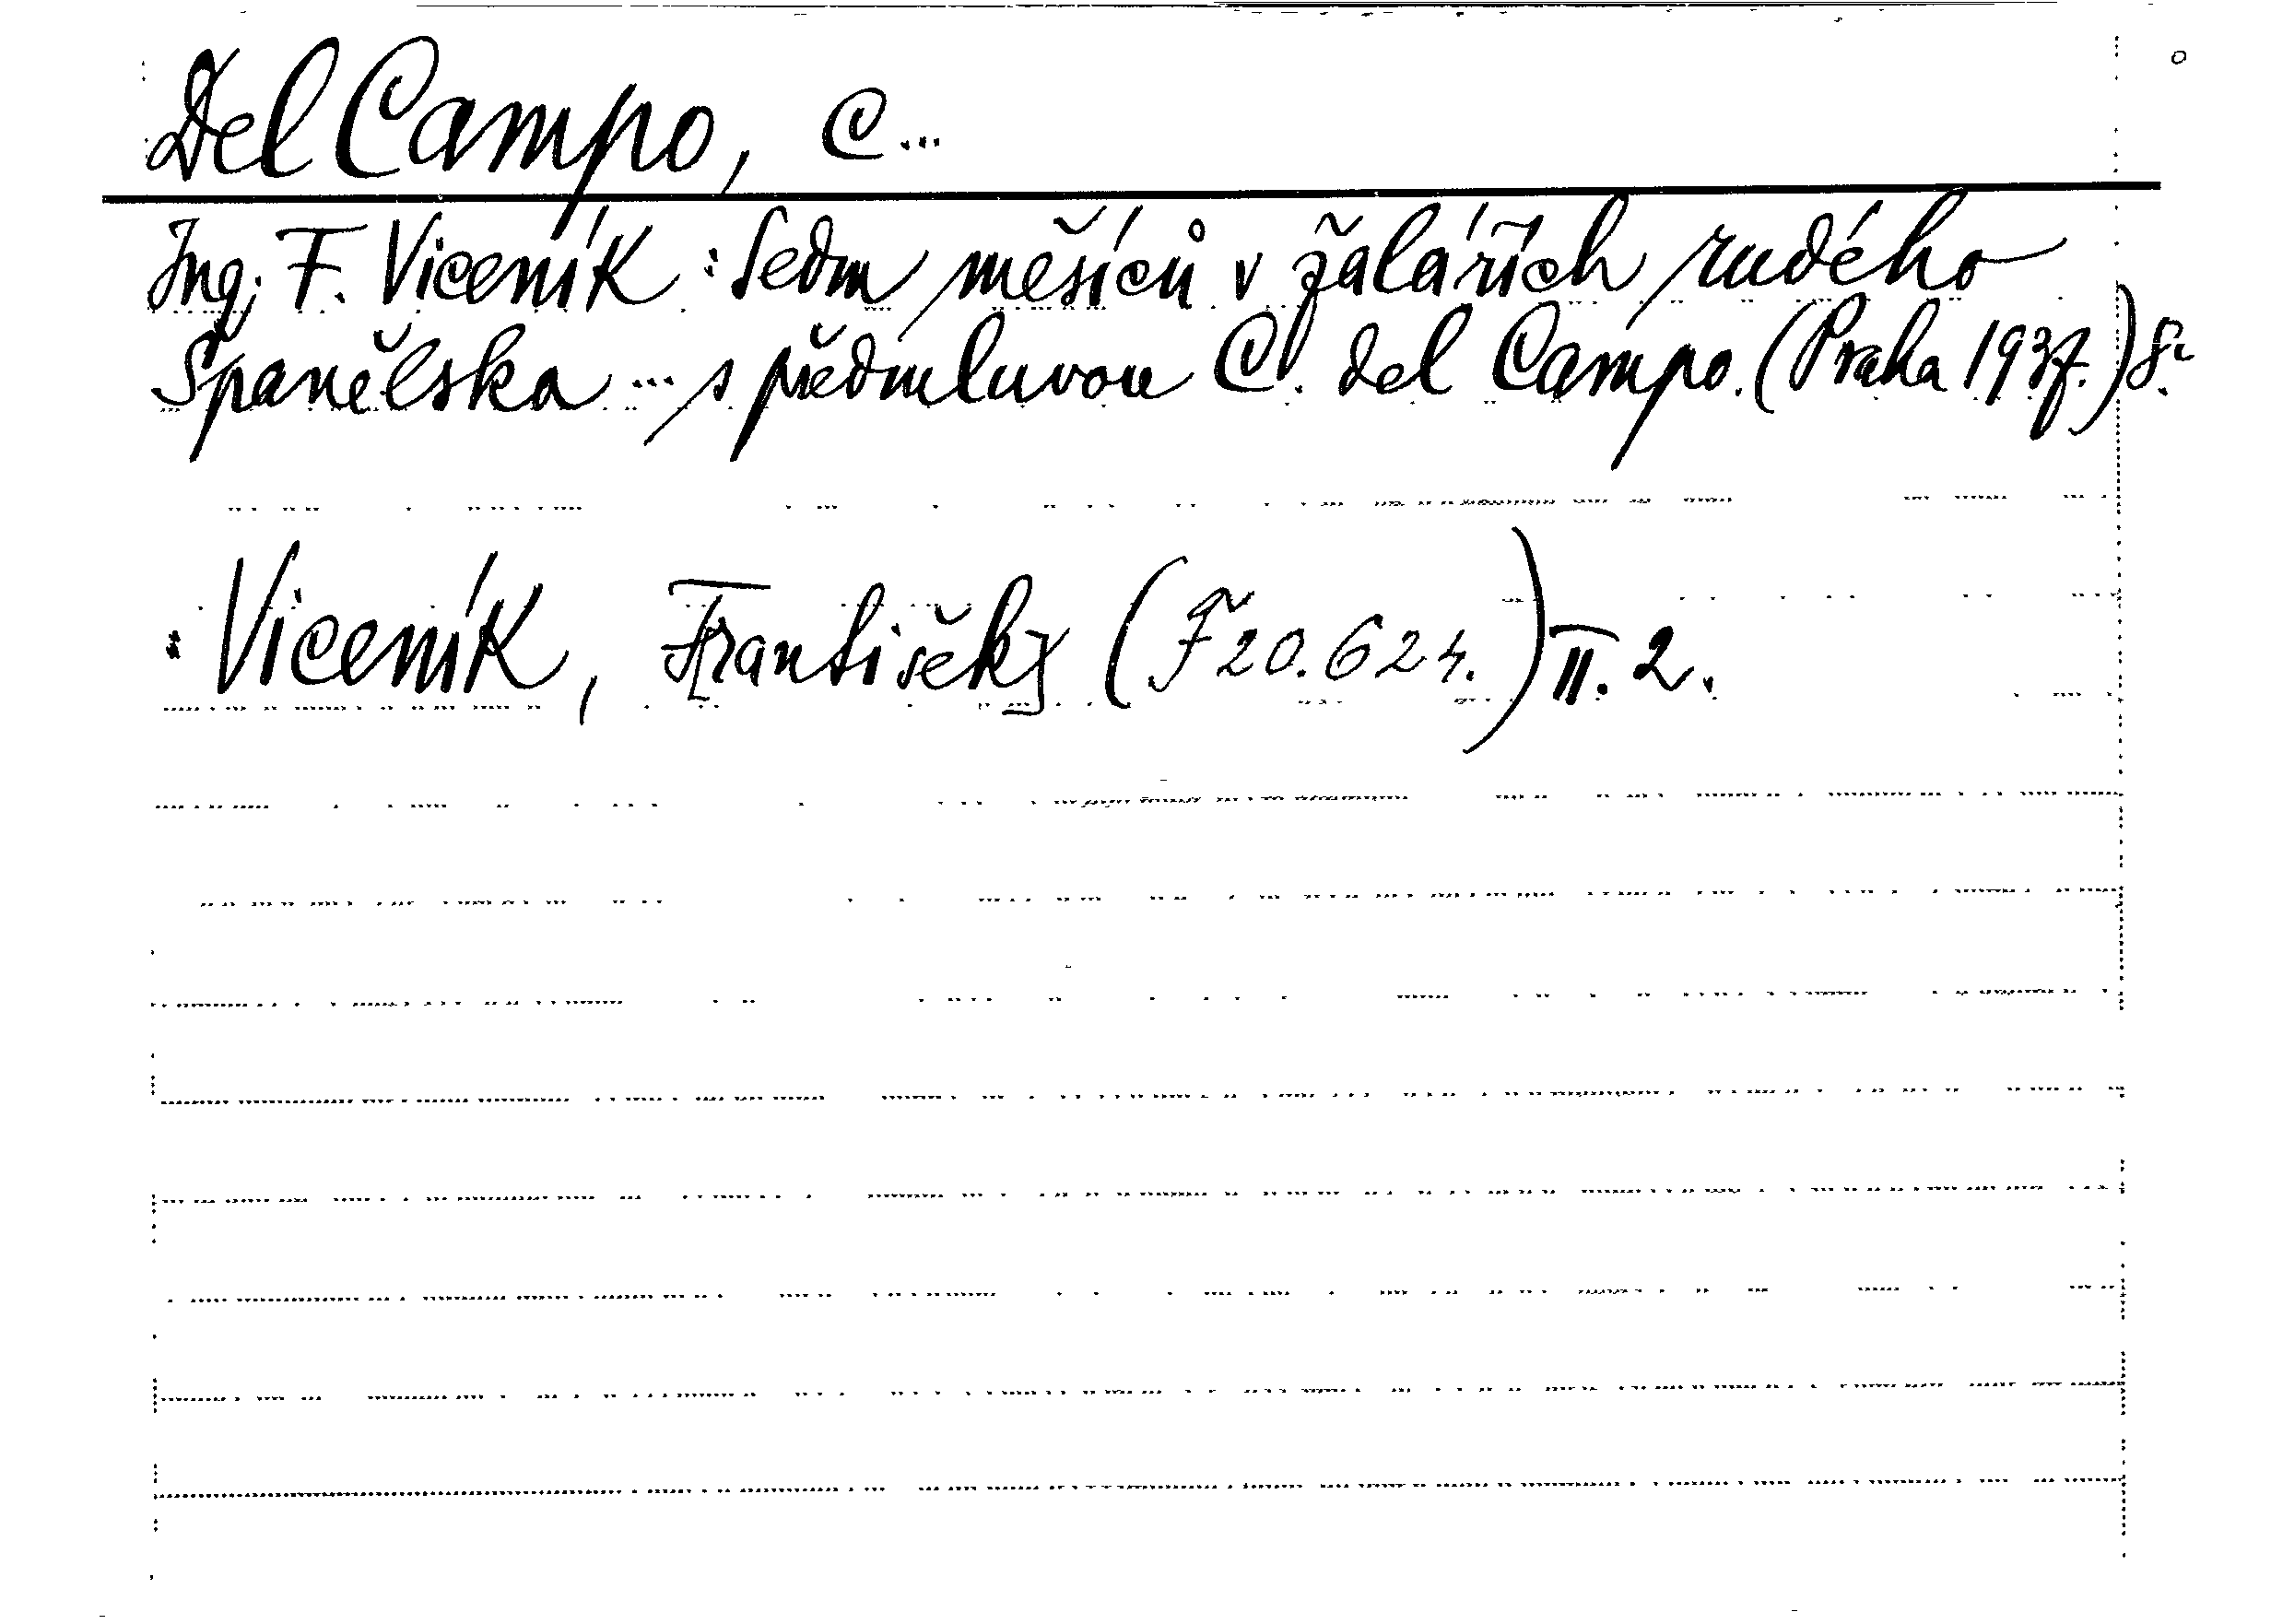 Del Campo, C...
Ing. F. Viceník: Sedm měsíců v žalářích rudého
Španělska ... s předmluvou C. del Campo. (Praha 1937.) 8.°
: Viceník, F[rantišek] (F 20.624.) II. 2.